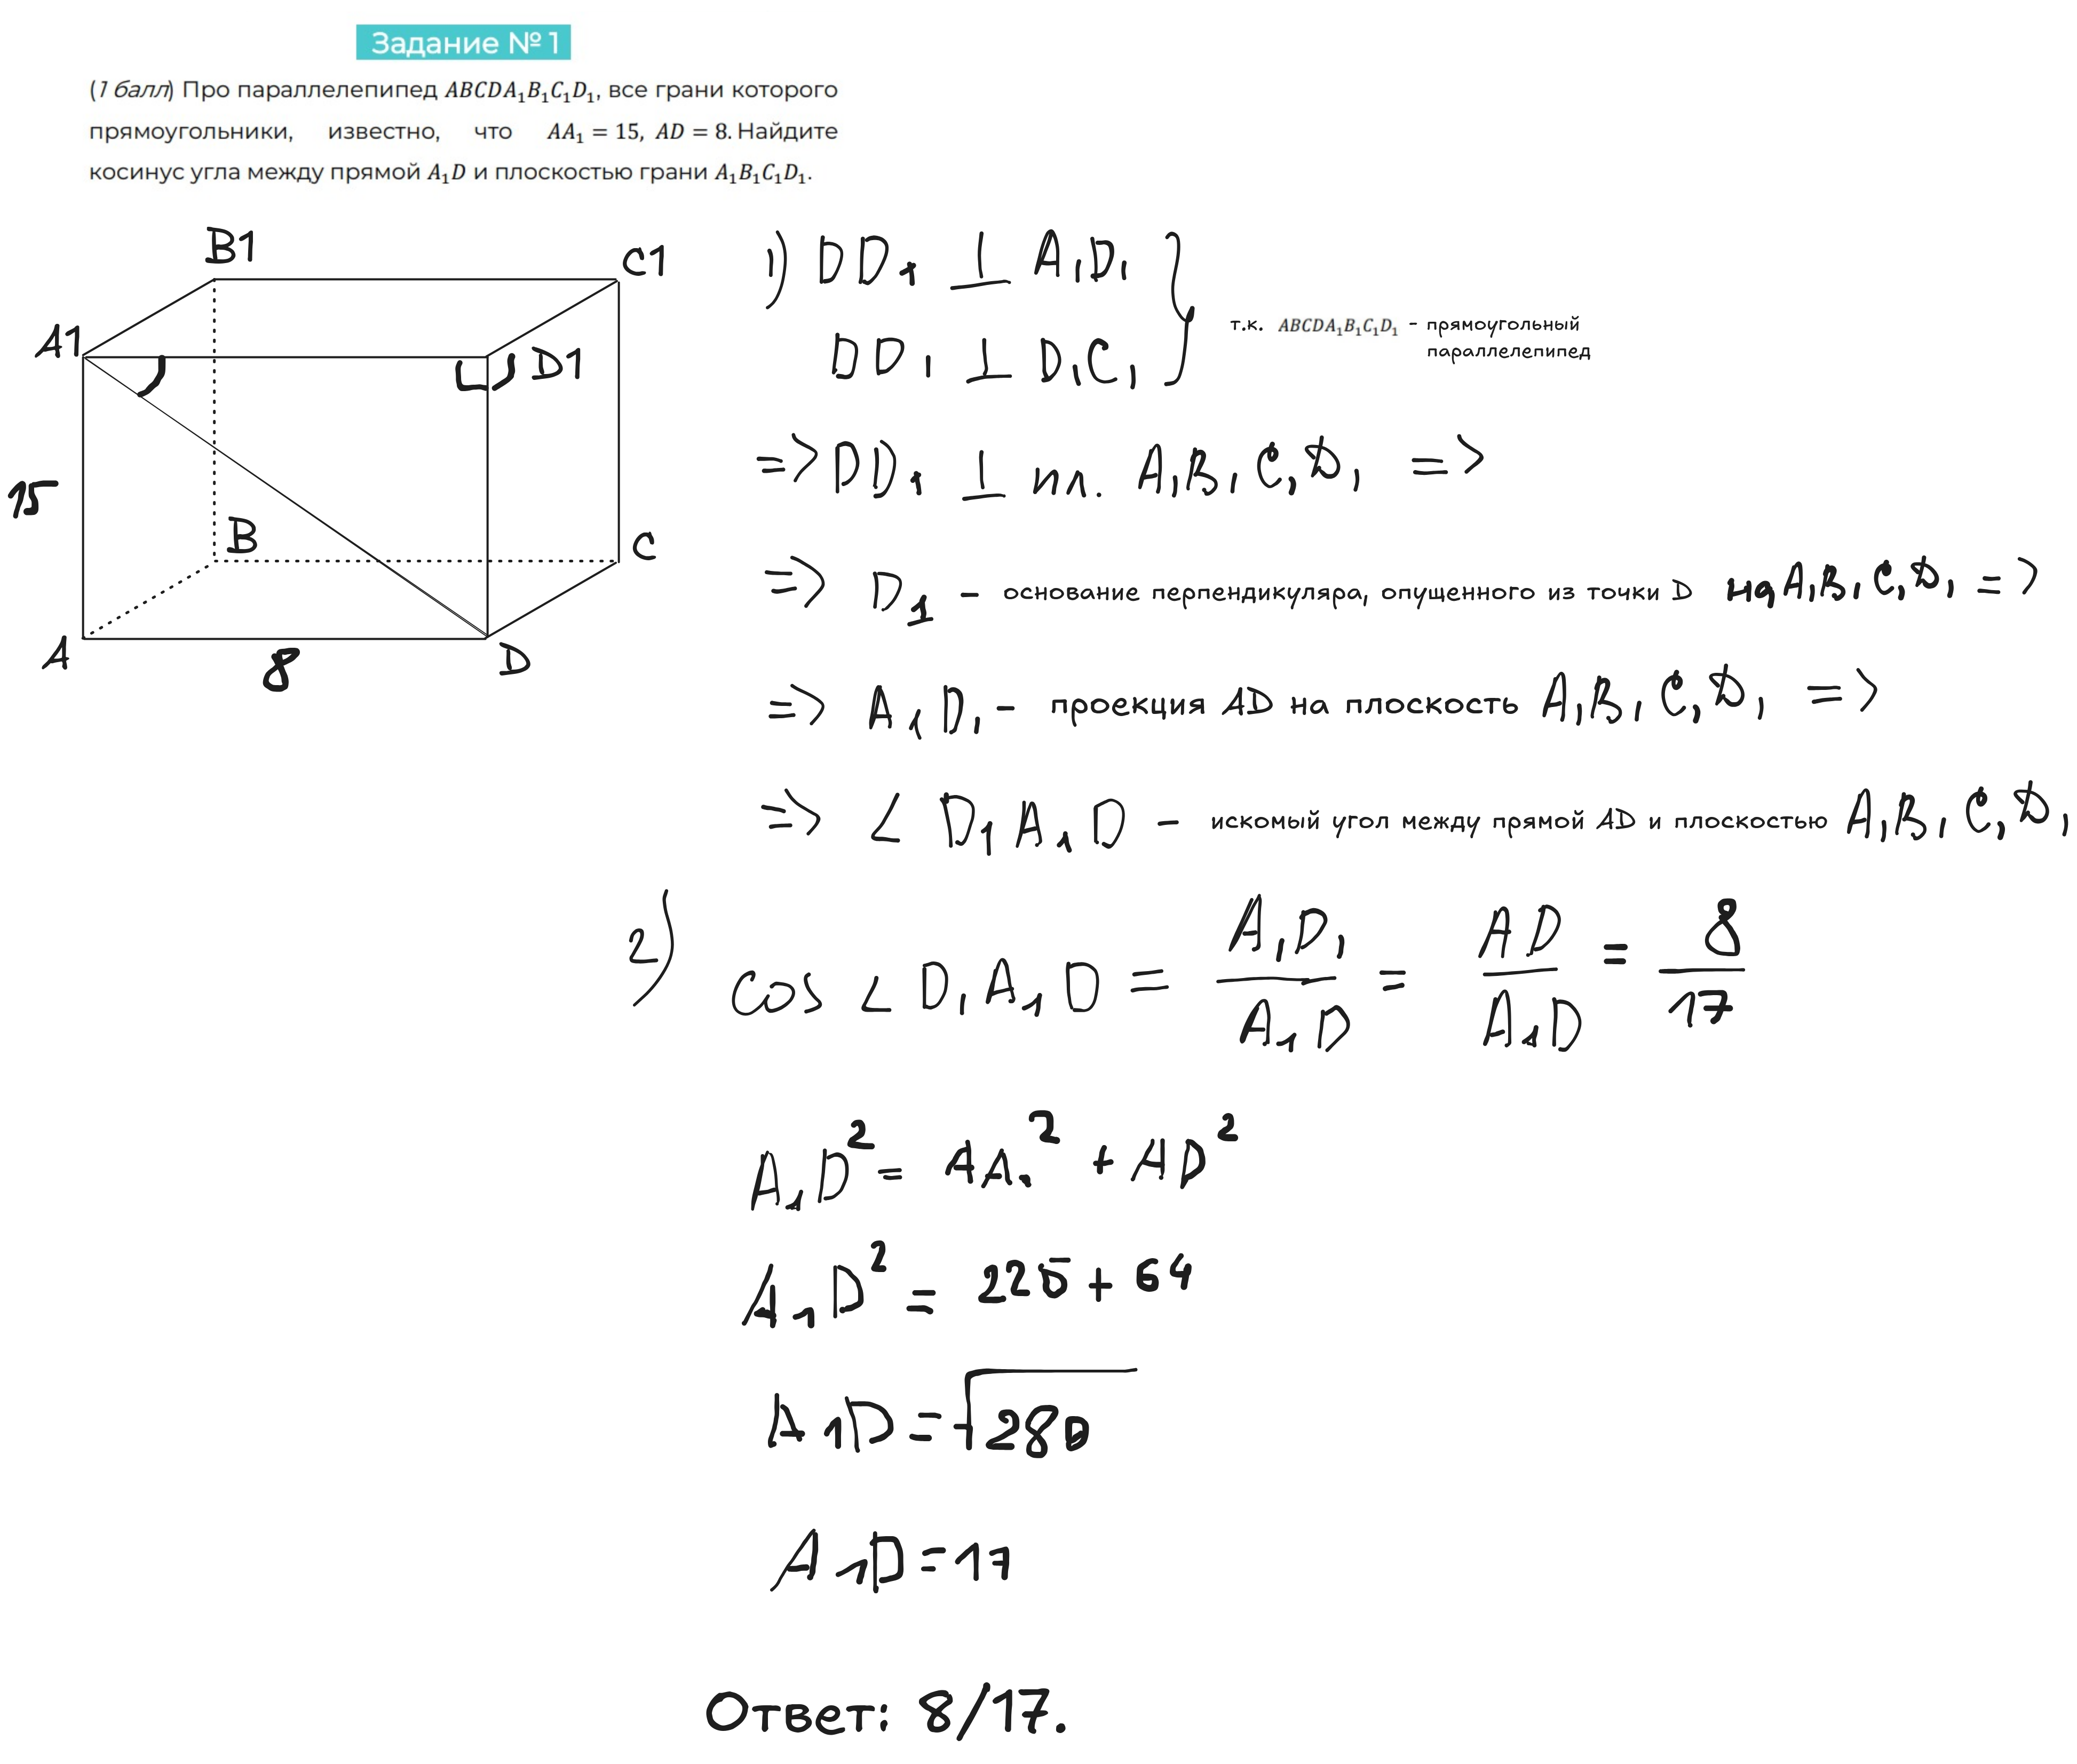 Задание № 1
(1 балл) Про параллелепипед ABCDA₁B₁C₁D₁, все грани которого
прямоугольники, известно, что AA₁ = 15, AD = 8. Найдите
косинус угла между прямой A₁D и плоскостью грани A₁B₁C₁D₁.
B1
C1
A1
D1
15
B
C
A
8
D
1) DD₁ ⊥ A₁D₁
DD₁ ⊥ D₁C₁
т.к. ABCDA₁B₁C₁D₁ – прямоугольный
параллелепипед
=> DD₁ ⊥ пл. A₁B₁C₁D₁ =>
=> D₁ – основание перпендикуляра, опущенного из точки D на A₁B₁C₁D₁ =>
=> A₁D₁ – проекция AD на плоскость A₁B₁C₁D₁ =>
=> ∠ D₁A₁D – искомый угол между прямой AD и плоскостью A₁B₁C₁D₁
2) cos ∠ D₁A₁D = A₁D₁/A₁D = AD/A₁D = 8/17
A₁D² = AA₁² + AD²
A₁D² = 225 + 64
A₁D = √28
A₁D = 17
Ответ: 8/17.